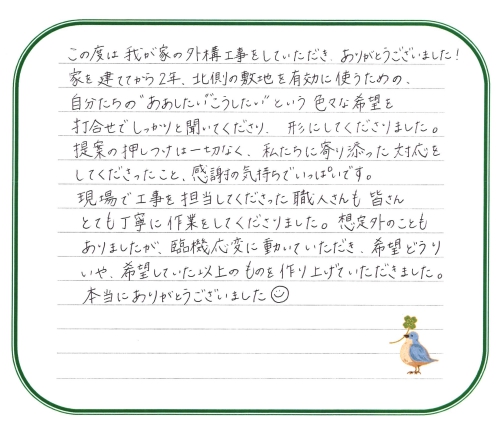 この度は我が家の外構工事をしていただき、ありがとうございました!
家を建ててから2年、北側の敷地を有効に使うための、
自分たちの"ああしたい""こうしたい"という色々な希望を
打合せでしっかりと聞いてくださり、形にしてくださりました。
提案の押しつけは一切なく、私たちに寄り添った対応を
してくださったこと、感謝の気持ちでいっぱいです。
現場で工事を担当してくださった職人さんも皆さん
とても丁寧に作業をしてくださりました。想定外のことも
ありましたが、臨機応変に動いていただき、希望どうり
いや、希望していた以上のものを作り上げていただきました。
本当にありがとうございました☺